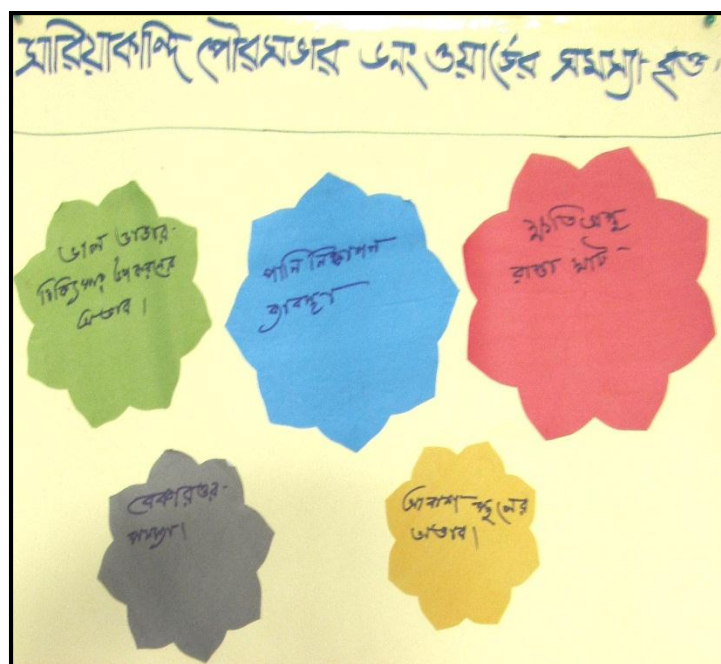 সারিয়াকান্দি পৌরসভার ৬নং ওয়ার্ডের সমস্যা
ভাল ডাক্তার
চিকিৎসার উপকরনের
অভাব।
পানি নিষ্কাশন
ব্যবস্থা
রাস্তা ঘাট
বেকারত্বের
সমস্যা।
আবাস স্থলের
অভাব।